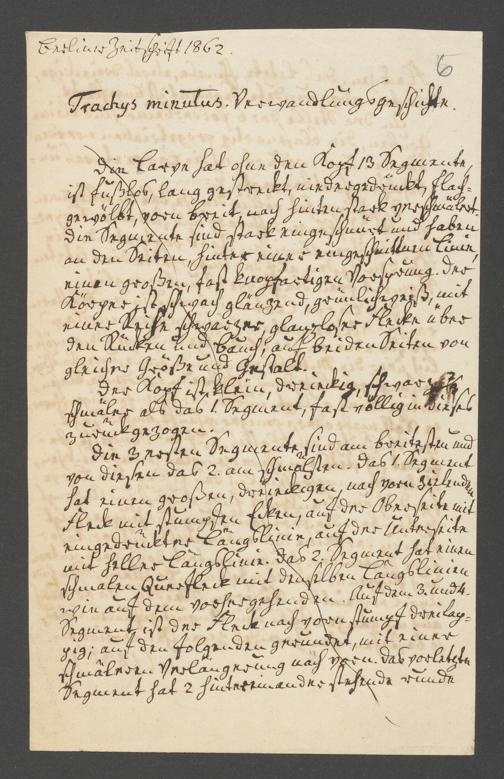 Berliner Zeitschrift 1862.
6
Trachys minutus. Verwandlungsgeschichte.
Die Larve hat ohne den Kopf 13 Segmente,
ist fußlos, lang gestreckt, niedergedrückt, flach-
gewölbt, vorn breit, nach hinten stark verschmälert.
Die Segmente sind stark eingeschnürt und haben
an den Seiten hinter einer eingeschnittenen Linie,
einen großen, fast knopfartigen Vorsprung. Der
Körper ist schwach glänzend, gelblichweiß, mit
einer Reihe schwarzer, glanzloser Flecke über
den Rücken und Bauch, auf beiden Seiten von
gleicher Größe und Gestalt.
Der Kopf ist klein, dreieckig, schwarz,
schmäler als das 1. Segment, fast völlig in dieses
zurückgezogen.
Die 3 ersten Segmente sind am breitesten und
von diesen das 2. am schmälsten. Das 1. Segment
hat einen großen, dreieckigen, nach vorn zielenden
Fleck mit stumpfen Ecken, auf der Oberseite mit
eingedrückter Längslinie, auf der Unterseite
mit heller Längslinie. Das 2. Segment hat einen
schmalen Querfleck mit denselben Längslinien
wie auf dem vorhergehenden. Auf dem 3. und 4.
Segment ist der Fleck nach vorn stumpf dreilap-
pig; auf den folgenden gerundet, mit einer
schmäleren Verlängerung nach vorn. Das vorletzte
Segment hat 2 hintereinander stehende runde